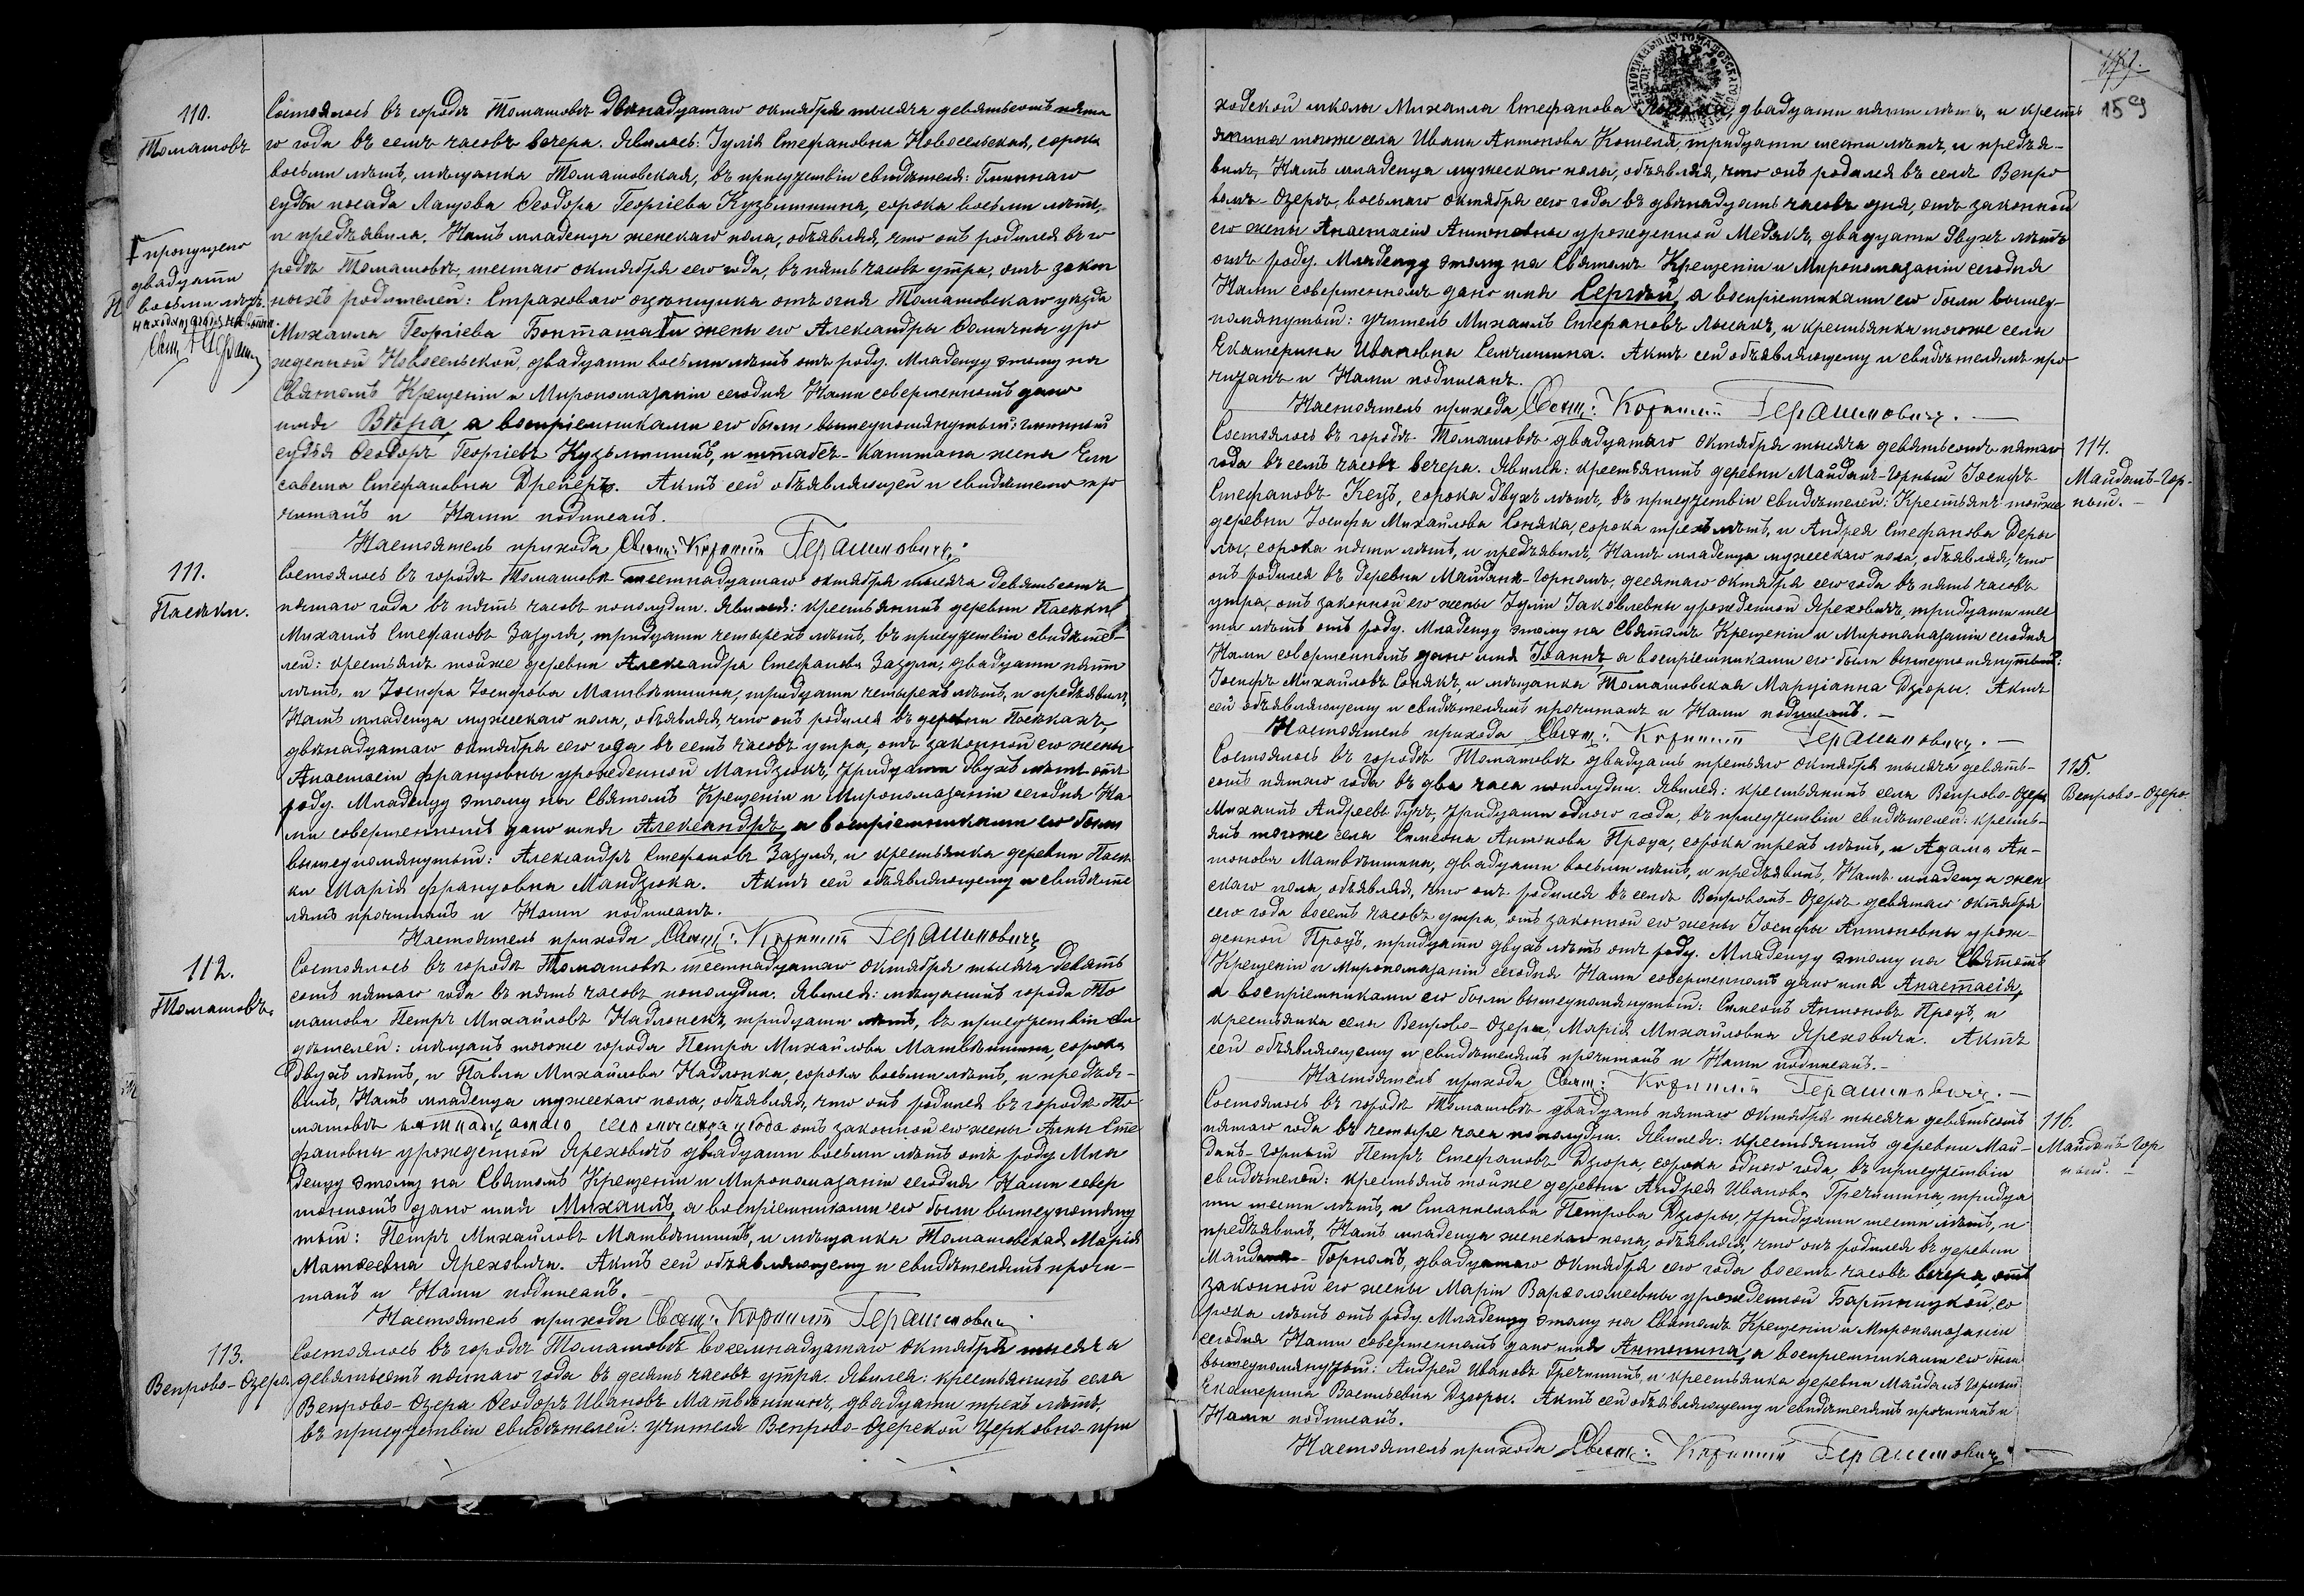 110.
Томашовъ
Состоялось въ городѣ Томашовѣ двѣнадцатаго октября тысяча девятьсотъ пята
го года въ семь часовъ вечера. Явилась: Іулія Стефановна Новосельская, сорока
восьми лѣтъ, мѣщанка Томашовская, въ присутствіи свидѣтеля: Гминнаго
судьи посада Лащова Ѳеодора Георгіева Кузьмишина, сорока восьми лѣтъ,
и предъявила Намъ младенца женскаго пола, объявляя, что онъ родился въ го
родѣ Томашовѣ, шестаго октября сего года, въ пять часовъ утра, отъ закон
ныхъ родителей: Страховаго оцѣнщика отъ огня Томашовскаго уѣзда
Михаила Георгіева и жены его Александры уро
жденной Новосельской, двадцати восьми лѣтъ отъ роду. Младенцу этому на
Святомъ Крещеніи и Миропомазаніи сегодня Нами совершенномъ дано
имя Вѣра, а воспріемниками его были вышеупомянутый: гминный
судья Ѳеодоръ Георгіевъ Кузьмишинъ, и штабсъ-капитана жена Ели
савета Стефановна Дрейеръ. Актъ сей объявляющей и свидѣтелю про
читанъ и Нами подписанъ.
Настоятель прихода Свящ: Корнилій Герашимовичъ.
пропущено
двадцати
восьми лѣтъ
111.
Пасѣки.
Состоялось въ городѣ Томашовѣ шестнадцатаго октября тысяча девятьсотъ
пятаго года въ пять часовъ пополудни. Явился: крестьянинъ деревни Пасѣки
Михаилъ Стефановъ Зазуля, тридцати четырехъ лѣтъ, въ присутствіи свидѣте-
лей: крестьянъ тойже деревни Александра Стефанова Зазули, двадцати пяти
лѣтъ, и Іосифа Іосифова Матвѣишина, тридцати четырехъ лѣтъ, и предъявилъ
Намъ младенца мужескаго пола, объявляя, что онъ родился въ деревни Посѣкахъ,
двѣнадцатаго октября сего года въ семь часовъ утра, отъ законной его жены
Анастасіи Францовны урожденной Мандзюкъ, тридцати двухъ лѣтъ отъ
роду. Младенцу этому на Святомъ Крещеніи и Миропомазаніи сегодня На
ми совершенномъ дано имя Александръ, а воспріемниками его были
вышеупомянутый: Александръ Стефановъ Зазуля, и крестьянка деревни Пасѣ
ки Марія Францовна Мандзюка. Актъ сей объявляющему и свидѣте
лямъ прочитанъ и Нами подписанъ.
Настоятель прихода Свящ: Корнилій Герашимовичъ
112.
Томашовъ.
Состоялось въ городѣ Томашовѣ шестнадцатаго октября тысяча девять
сотъ пятаго года въ пять часовъ пополудни. Явился: мѣщанинъ города То
машова Петръ Михайловъ Надлонекъ, тридцати лѣтъ, въ присутствіи сви
дѣтелей: мѣщанъ тогоже города Петра Михайлова Матвѣишина, сорока
двухъ лѣтъ, и Павла Михайлова Надлонка, сорока восьми лѣтъ, и предъя-
вилъ Намъ младенца мужескаго пола, объявляя, что онъ родился въ городѣ То
машовѣ сего мѣсяца и года отъ законной его жены Анны Сте
фановны урожденной Яреховичъ двадцати восьми лѣтъ отъ роду Мла
денцу этому на Святомъ Крещеніи и Миропомазаніи сегодня Нами совер
шенномъ дано имя Михаилъ, а воспріемниками его были вышеупомяну
тый: Петръ Михайловъ Матвѣишинъ, и мѣщанка Томашовская Марія
Матѳеевна Яреховича. Актъ сей объявляющему и свидѣтелямъ прочи-
танъ и Нами подписанъ.
Настоятель прихода Свящ: Корнилій Герашимовичъ
113.
Вепрово-Озера.
Состоялось въ городѣ Томашовѣ восемнадцатаго октября тысяча
девятьсотъ пятаго года въ десять часовъ утра. Явился: крестьянинъ села
Вепрово-Озера Ѳеодоръ Ивановъ Матвѣишинъ, двадцати трехъ лѣтъ,
въ присутствіи свидѣтелей: учителя Вепрово-Озерской церковно-при
159
ходской школы Михаила Стефанова двадцати пяти лѣтъ, и кресть
янина тогоже села Ивана Антонова Кошеля, тридцати шести лѣтъ, и предъя-
вилъ Намъ младенца мужескаго пола, объявляя, что онъ родился въ селѣ Вепро
вомъ-Озерѣ, восьмаго октября сего года въ двѣнадцать часовъ дня, отъ законной
его жены Анастасіи Антоновны урожденной Медякъ, двадцати двухъ лѣтъ
отъ роду. Младенцу этому на Святомъ Крещеніи и Миропомазаніи сегодня
Нами совершенномъ дано имя Сергѣй, а воспріемниками его были вышеу-
помянутый: учитель Михаилъ Стефановъ и крестьянка тогоже села
Екатерина Ивановна Семчишина. Актъ сей объявляющему и свидѣтелямъ про
читанъ и Нами подписанъ.
Настоятель прихода Свящ: Корнилій Герашимовичъ.
114.
Майданъ-Гор-
ный.
Состоялось въ городѣ Томашовѣ двадцатаго октября тысяча девятьсотъ пятаго
года въ семь часовъ вечера. Явился: крестьянинъ деревни Майданъ-Горный Іосифъ
Стефановъ Кецъ, сорока двухъ лѣтъ, въ присутствіи свидѣтелей: Крестьянъ тойже
деревни Іосифа Михайлова Соняка, сорока трехъ лѣтъ, и Андрея Стефанова Дзю
лы, сорока пяти лѣтъ, и предъявилъ Намъ младенца мужескаго пола, объявляя, что
онъ родился въ деревни Майданѣ-Горномъ, десятаго октября сего года въ пять часовъ
утра, отъ законной его жены Іуліи Іаковлевны урожденной Яреховичъ, тридцати шес
ти лѣтъ отъ роду. Младенцу этому на Святомъ Крещеніи и Миропомазаніи сегодня
Нами совершенномъ дано имя Іоаннъ, а воспріемниками его были вышеупомянутый:
Іосифъ Михайловъ Сонякъ, и мѣщанка Томашовская Марціанна Дзюры. Актъ
сей объявляющему и свидѣтелямъ прочитанъ и Нами подписанъ.
Настоятель прихода Свящ: Корнилій Герашимовичъ.
115.
Вепрово-Озеро
Состоялось въ городѣ Томашовѣ двадцать третьяго октября тысяча девять-
сотъ пятаго года въ два часа пополудни. Явился: крестьянинъ села Вепрово-Озера
Михаилъ Андреевъ тридцати одного года, въ присутствіи свидѣтелей: кресть-
янъ тогоже села Симеона Антонова Проца, сорока трехъ лѣтъ, и Адама Ан-
тонова Матвѣишина, двадцати восьми лѣтъ, и предъявилъ Намъ младенца жен
скаго пола, объявляя, что онъ родился въ селѣ Вепровомъ-Озерѣ девятаго октября
сего года восемь часовъ утра, отъ законной его жены Іосифы Антоновны урож-
денной Процъ, тридцати двухъ лѣтъ отъ роду. Младенцу этому на Святомъ
Крещеніи и Миропомазаніи сегодня Нами совершенномъ дано имя Анастасія,
а воспріемниками его были вышеупомянутый: Симеонъ Антоновъ Процъ, и
крестьянка села Вепрово-Озера Марія Михайловна Яреховича. Актъ
сей объявляющему и свидѣтелямъ прочитанъ и Нами подписанъ.-
Настоятель прихода Свящ: Корнилій Герашимовичъ.
116.
Майданъ Гор
ный.
Состоялось въ городѣ Томашовѣ двадцать пятаго октября тысяча девятьсотъ
пятаго года въ четыре часа пополудни. Явился: крестьянинъ деревни Май-
данъ-Горный Петръ Стефановъ Дзюра, сорока одного года въ присутствіи
свидѣтелей: крестьянъ тойже деревни Андрея Иванова Гречишина, тридца
ти шести лѣтъ, и Станислава Петрова Дзюры, тридцати шести лѣтъ, и
предъявилъ Намъ младенца женскаго пола, объявляя, что онъ родился въ деревни
Майданѣ-Горномъ, двадцатаго октября сего года восемь часовъ вечера, отъ
законной его жены Маріи Варѳоломеевны урожденной Бартницкой, со
рока лѣтъ отъ роду. Младенцу этому на Святомъ Крещеніи и Миропомазаніи
сегодня Нами совершенномъ дано имя Антонина, а воспріемниками его были
вышеупомянутый: Андрей Ивановъ Гречишинъ, и крестьянка деревни Майданъ Горный
Екатерина Васильевна Дзюры. Актъ сей объявляющему и свидѣтелямъ прочитанъ и
Нами подписанъ.
Настоятель прихода Свящ: Корнилій Герашимовичъ.